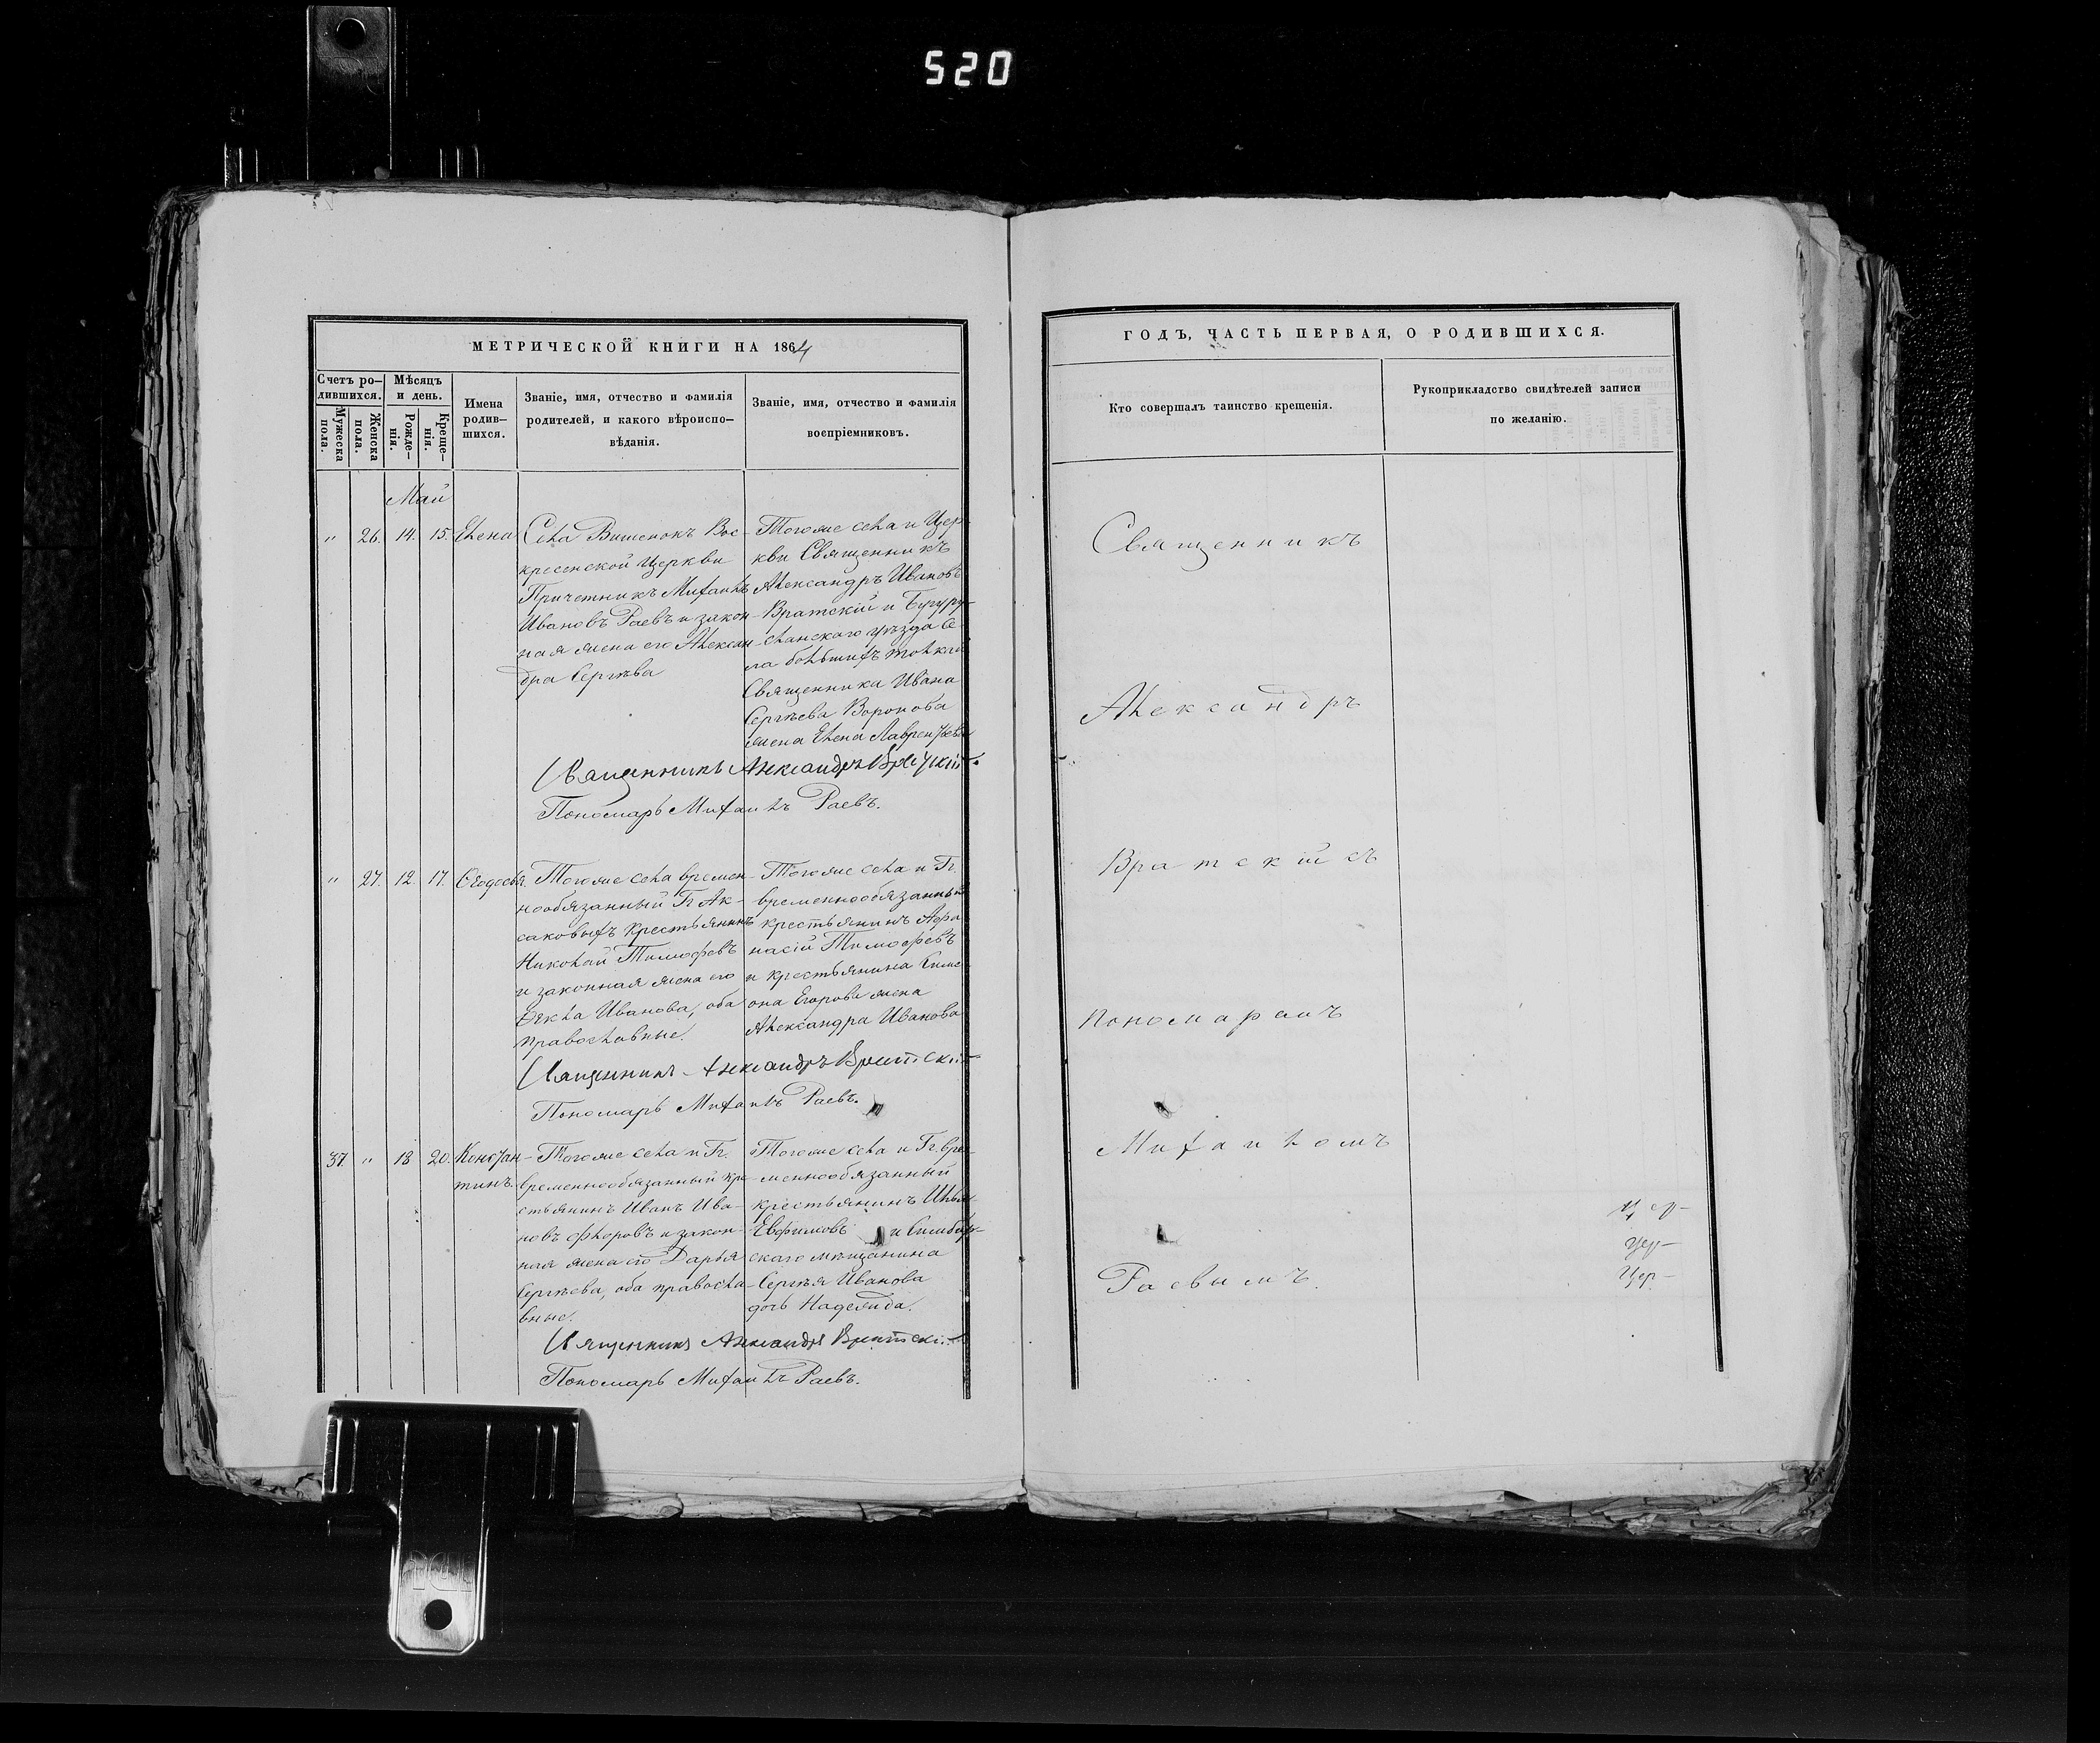 520
МЕТРИЧЕСКОЙ КНИГИ НА 1864
Счетъ ро-
дившихся.
Мужеска
пола.
Женска
пола.
Мѣсяцъ
и день.
Рожде-
нія.
Креще-
нія.
Имена
родив-
шихся.
Званіе, имя, отчество и фамилія
родителей, и какого вѣроиспо-
вѣданія.
Званіе, имя, отчество и фамилія
воспріемниковъ.
Май
" 26. 14. 15. Елена
Села Вишенокъ Вос-
кресенской Церкви
Причетникъ Михаилъ
Ивановъ Раевъ и закон-
ная жена его Алексан-
дра Сергѣва
Тогоже села и Цер-
кви Священникъ
Александръ Ивановъ
Вратскій и Бугуру-
сланскаго уѣзда Се
ла большихъ толкай
Священника Ивана
Сергѣева Воронова
жена Елена Лаврентьева
Священникъ Александръ Вратскій
Пономарь Михаилъ Раевъ.
" 27. 12. 17. Ѳеодосья.
Тогоже села времен-
нообязанный Г. Ак-
саковыхъ Крестьянинъ
Николай Тимофеевъ
и законная жена его
Ѳекла Иванова, оба
православные.
Тогоже села и Гг.
временнообязанный
крестьянинъ Афа
насій Тимофеевъ
и крестьянина Симе
она Егорова жена
Александра Иванова
Священникъ Александръ Вратскій
Пономарь Михаилъ Раевъ.
37. " 18 20. Констан-
тинъ.
Тогоже села и Гг.
временнообязанный кре-
стьянинъ Иванъ Ива-
новъ Флоровъ и закон-
ная жена его Дарья
Сергѣева, оба правосла-
вные.
Тогоже села и Гг. вре-
меннообязанный
крестьянинъ Илья
Евфимовъ и Симбир-
скаго мѣщанина
Сергѣя Иванова
дочь Надежда.
Священникъ Александръ Вратскій
Пономарь Михаилъ Раевъ.
ГОДЪ, ЧАСТЬ ПЕРВАЯ, О РОДИВШИХСЯ.
Кто совершалъ таинство крещенія.
Рукоприкладство свидѣтелей записи
по желанію.
Священникъ
Александръ
Вратскій съ
пономаремъ
Михаиломъ
Раевымъ.
Цер-
Цер-
Цер-